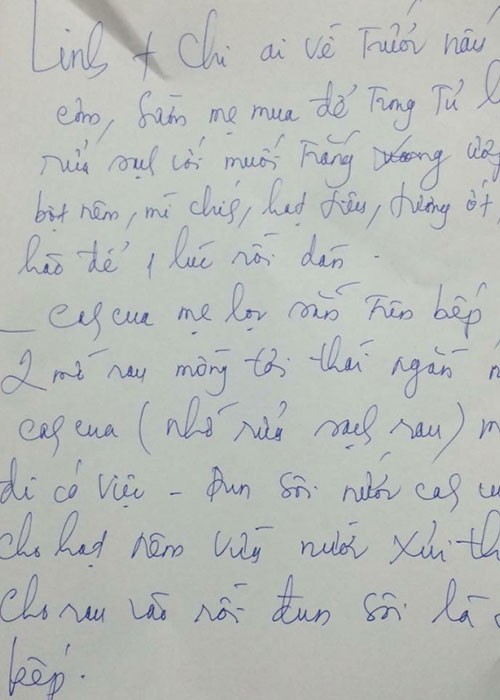 Linh + Chi ai về Trước nấu
cơm, Sườn mẹ mua để Trong Tủ
rửa sạch với muối Trắng ướp
bột nêm, mì chính, hạt tiêu, tương ớt,
hào để 1 lúc rồi dán.
_ canh cua mẹ lọc sẵn Trên bếp
2 mớ rau mồng tơi thái ngắn n
canh cua (nhớ rửa sạch rau) m
đi có việc - Đun sôi nước canh cu
cho hạt nêm vừa nước Xủi th
cho rau vào rồi đun sôi là
bếp.